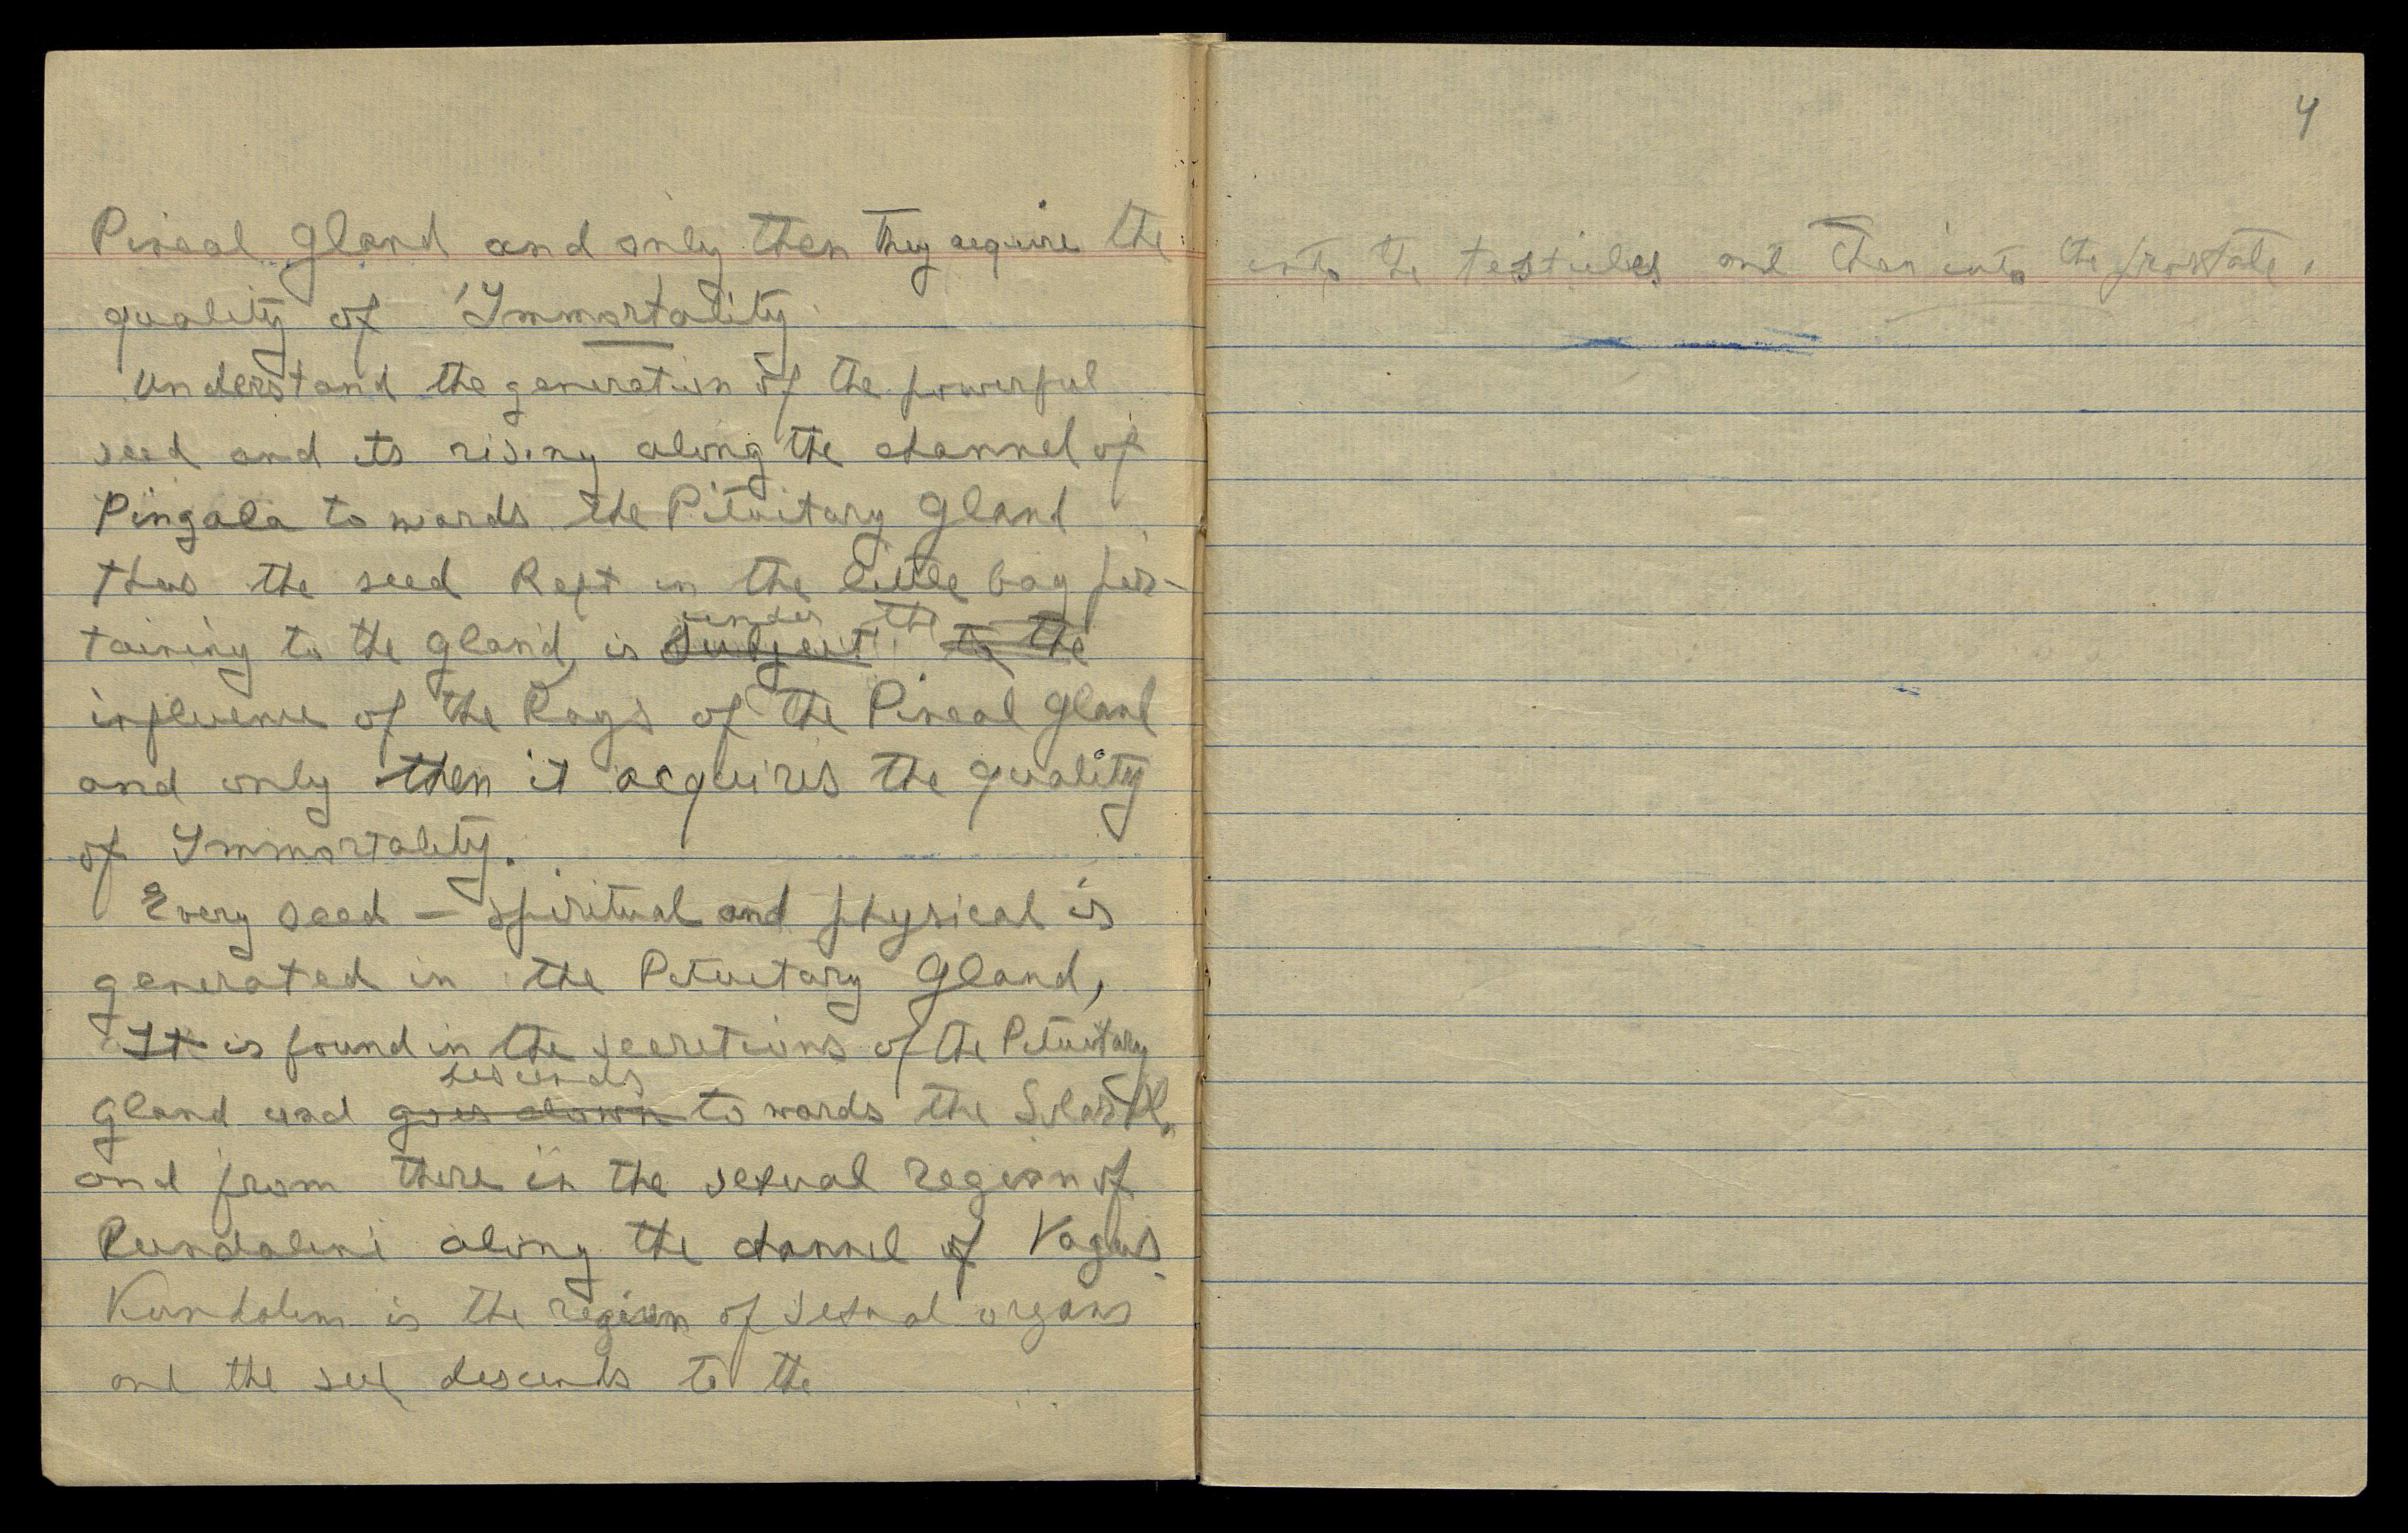 Pineal Gland and only then they acquire the
quality of 'Immortality
Understand the generation of the powerful
seed and its rising along the channel of
Pingala towards the Pituitary Gland
thus the seed kept in the little bag per-
taining to the gland, is subject to the
under the
influence of the Rays of the Pineal Gland
and only then it acquires the quality
of Immortality.
Every seed — spiritual and physical is
generated in the Pituitary Gland,
It is found in the secretions of the Pituitary
descends
Gland and goes down towards the Solar Pl.
and from there in the sexual region of
Kundalini along the channel of Vagus.
Kundalini is the region of sexual organs
and the seed descends to the
4
into the testicles and then into the prostate.